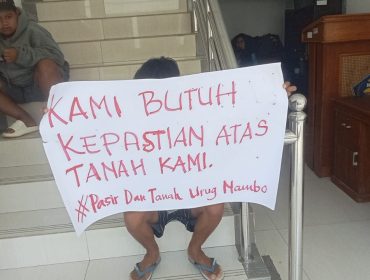 KAMI BUTUH
KEPASTIAN ATAS
TANAH KAMI.
#Pasir Dan Tanah Urug Mambo